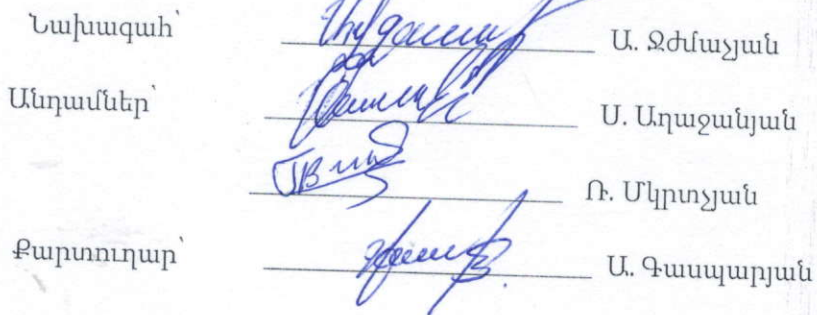 Նախագահ՝ Ա. Ջժմաչյան
Անդամներ՝ Ս. Աղաջանյան
Ռ. Մկրտչյան
Քարտուղար՝ Ա. Գասպարյան